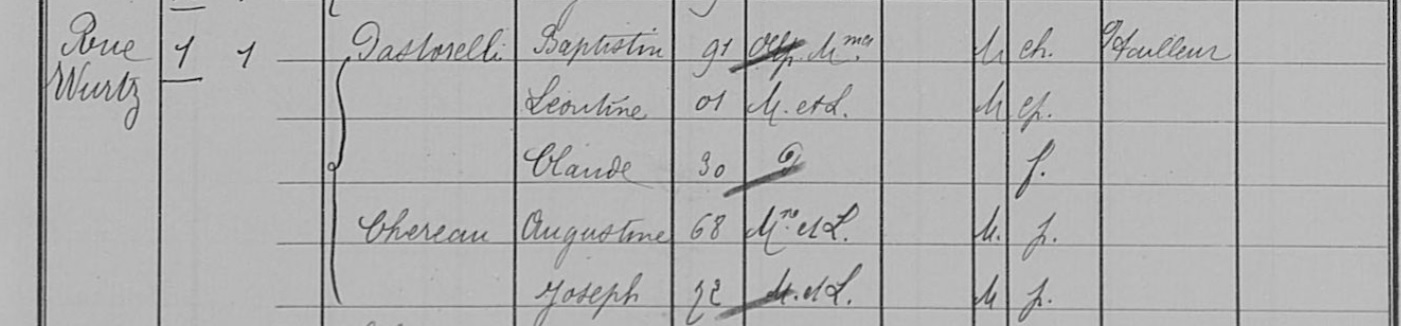 Rue 1 1 Pastorelli Baptistin 91 Alp. Mmes M ch. Tailleur
Wurtz Léontine 01 M. et L. M ep.
Claude 30 f.
Chereau Augustine 68 M.ne et L. M. p.
Joseph 72 M. et L. M p.